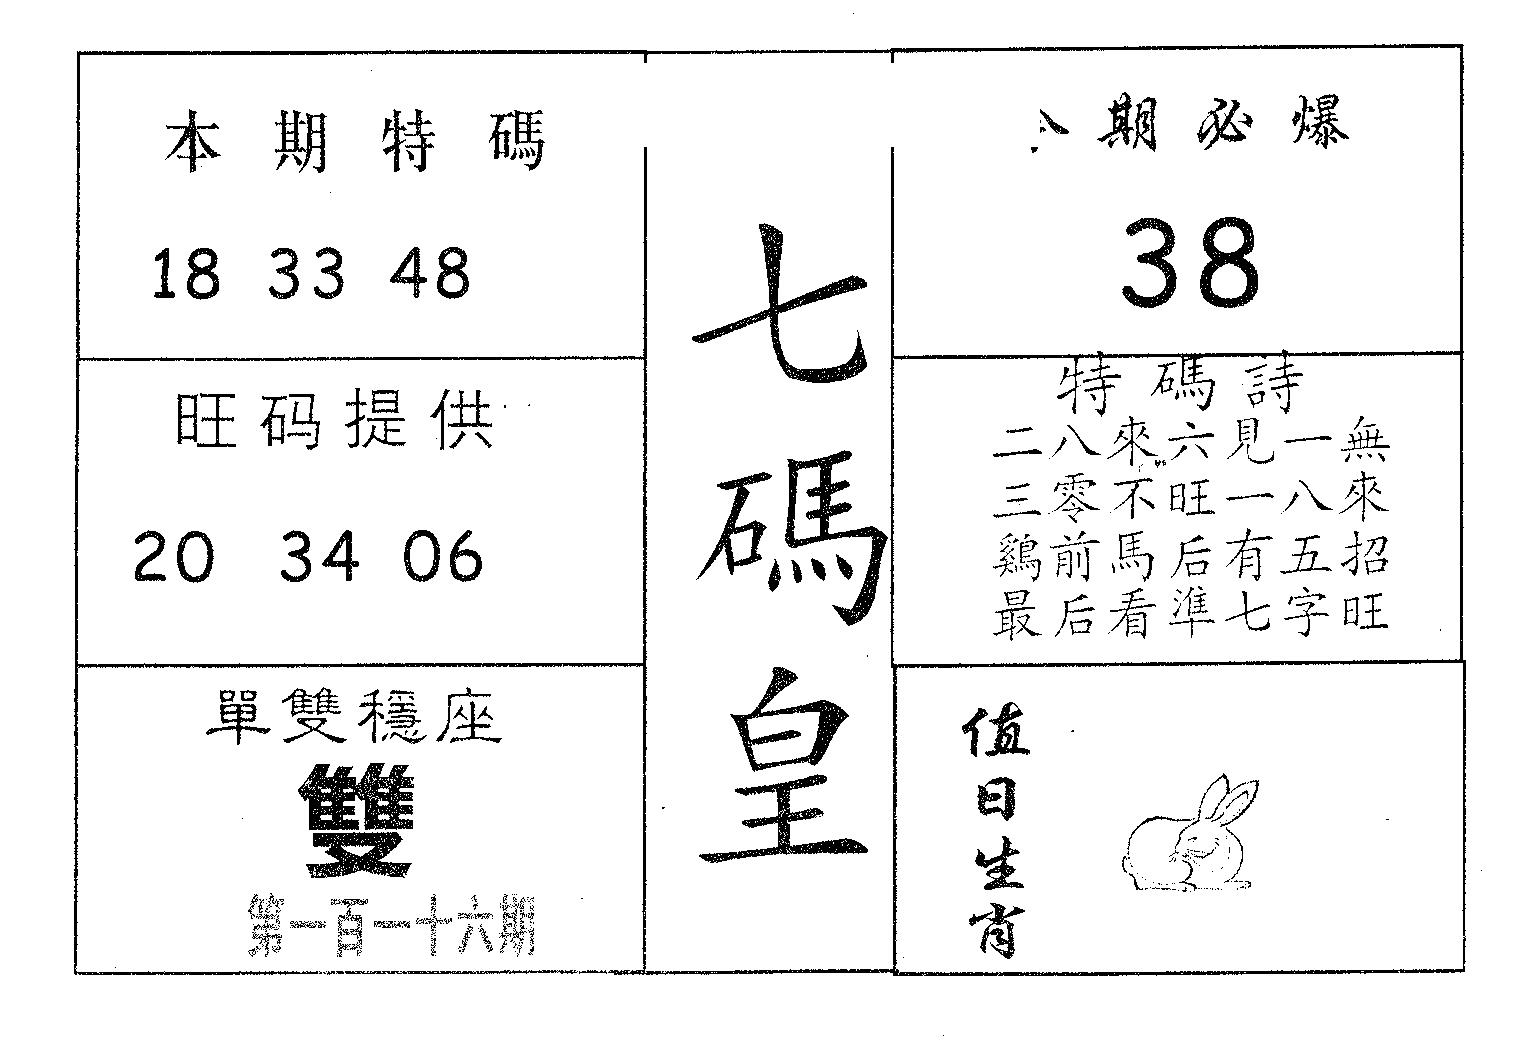 本期特碼
18 33 48
旺码提供
20 34 06
單雙穩座
雙
第一百一十六期
七碼皇
期必爆
38
特碼詩
二八來六見一無
三零不旺一八來
鷄前馬后有五招
最后看準七字旺
值日生肖